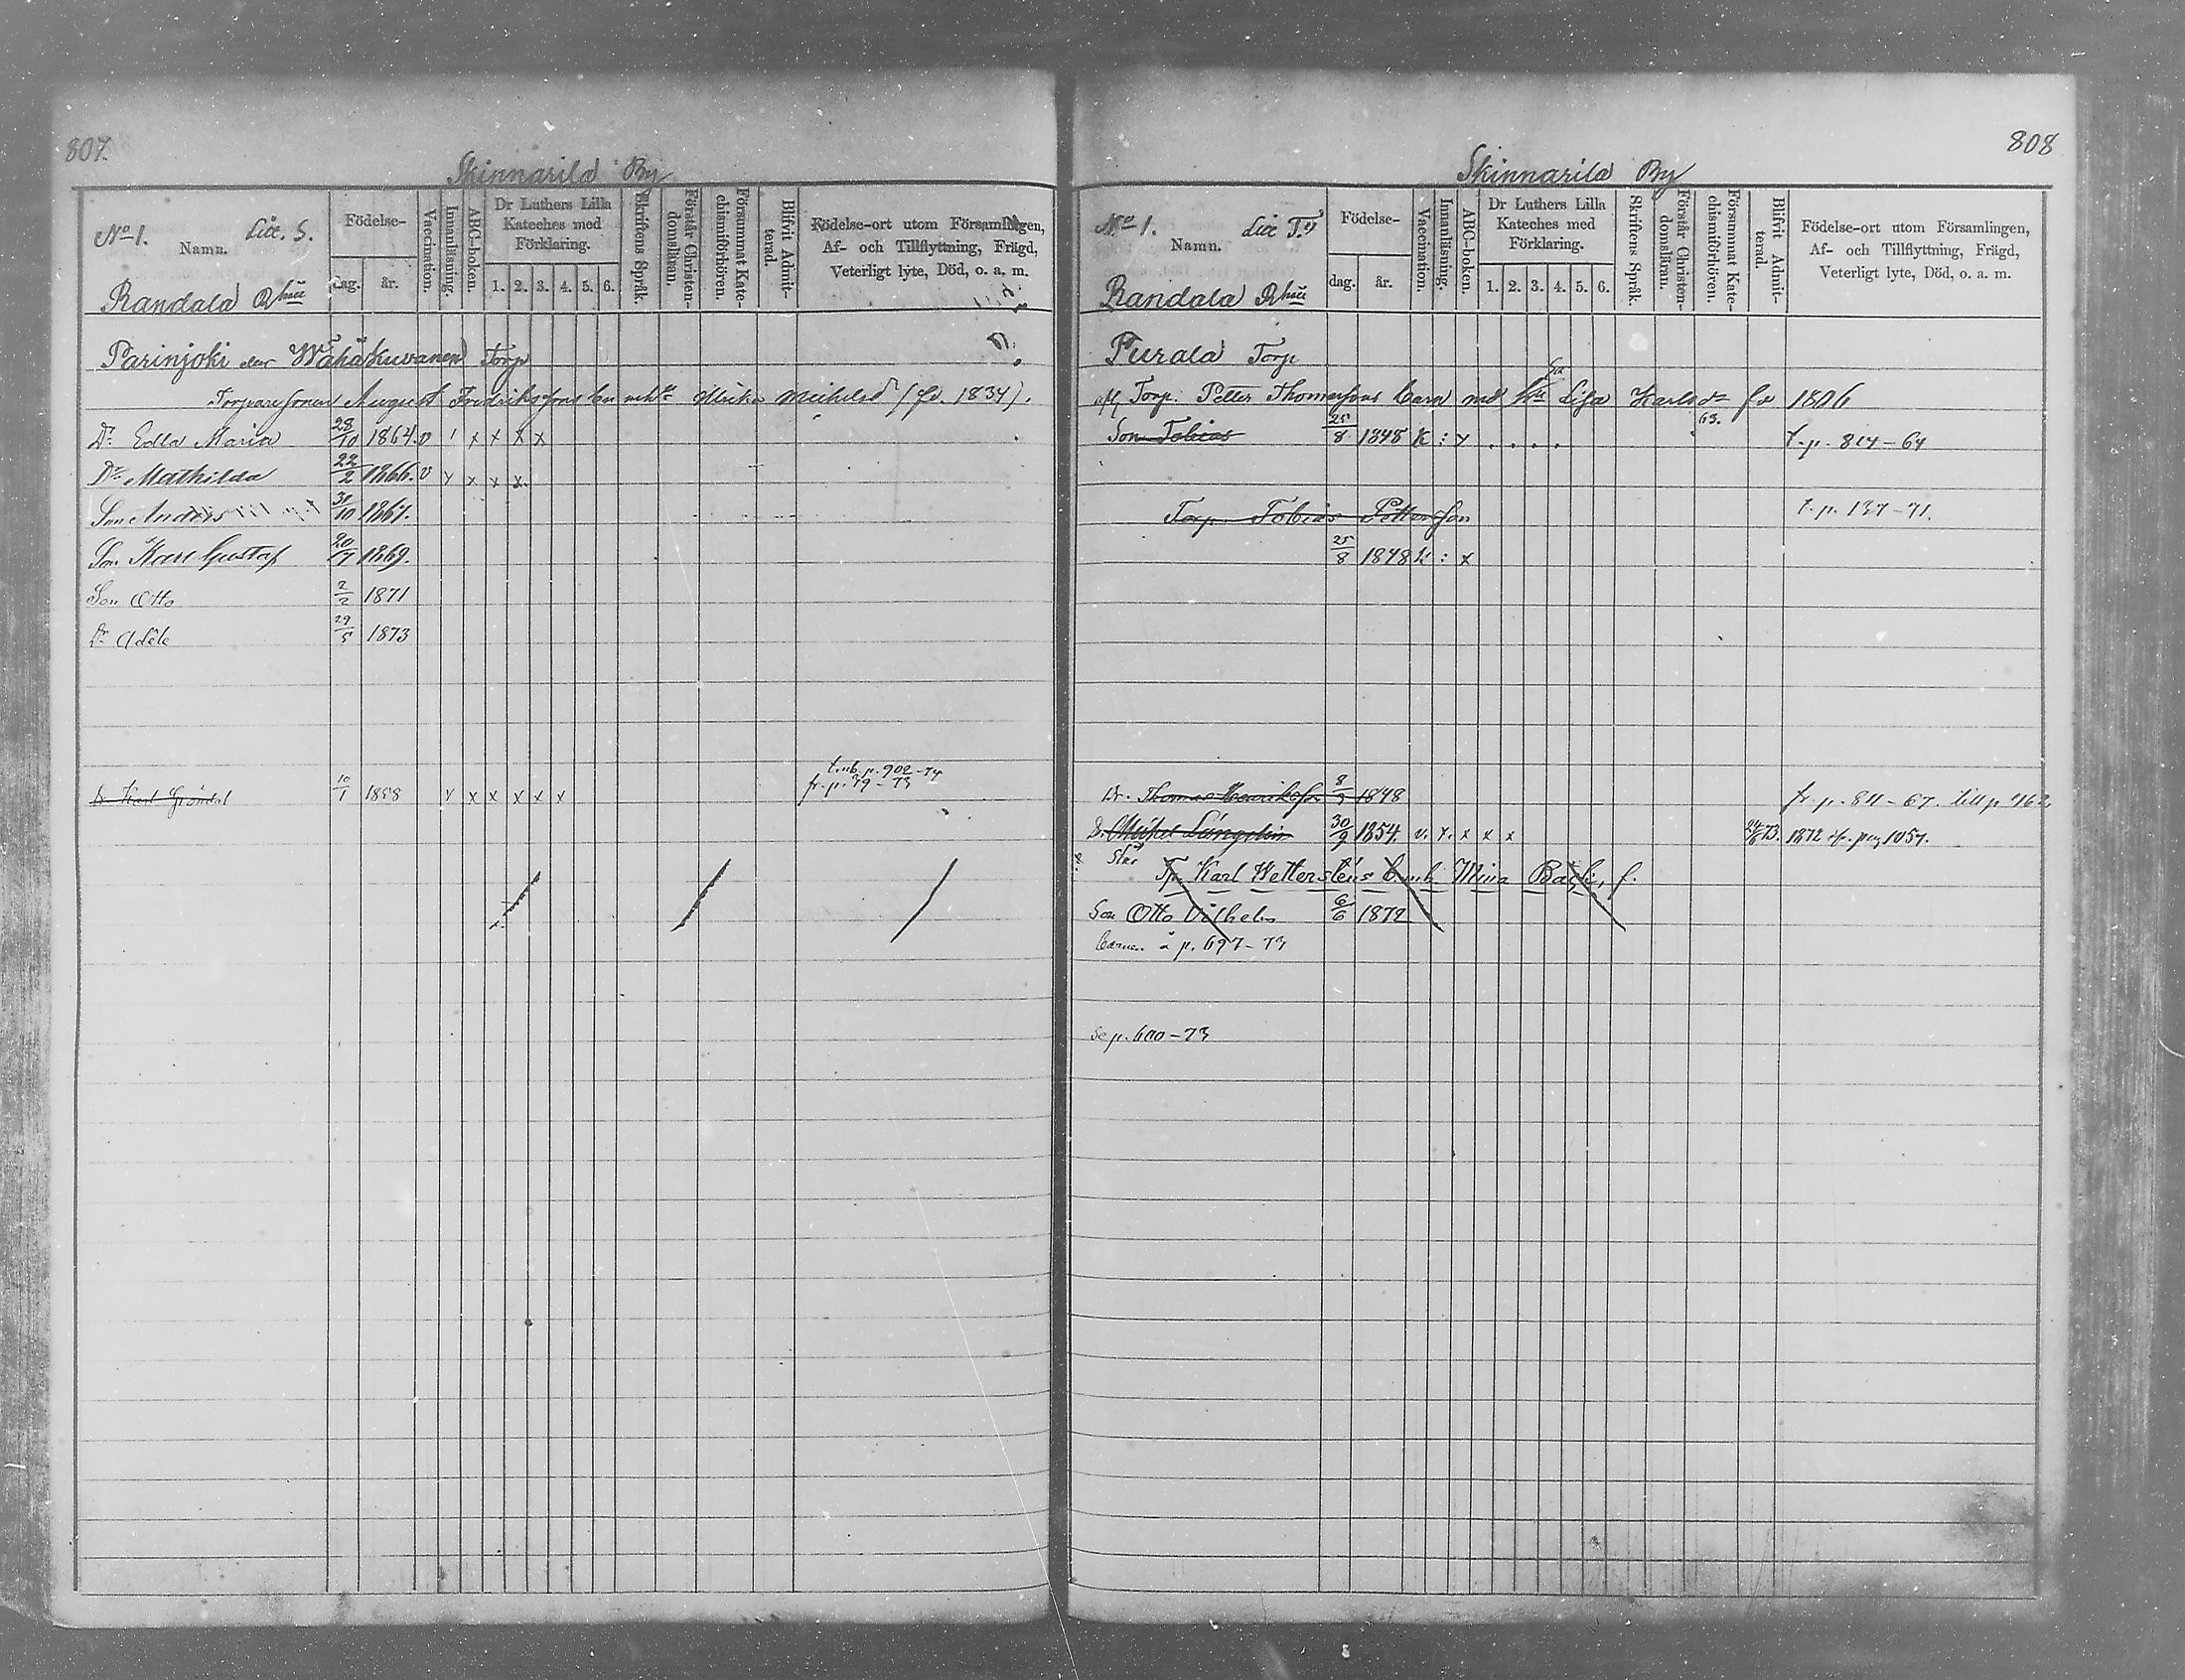 807.
Skinnarila By
No 1. Litt. S.
Namn.
Randala Rhu
Födelse-
dag. år.
Vaccination.
Innanläsning.
ABC-boken.
Dr Luthers Lilla
Kateches med
Förklaring.
1. 2. 3. 4. 5. 6.
Skriftens Språk.
Förstår Christen-
domsläran.
Försummat Kate-
chismiförhören.
Blifvit Admit-
terad.
Födelse-ort utom Församlingen,
Af- och Tillflyttning, Frägd,
Veterligt lyte, Död, o. a. m.
Parinjoki eller Wähäkuvanen Torp
Torparesonen August Fredrikssons barn Ulrika Michelsd (fö. 1834).
Dr Edla Maria 28/10 1864. v x x x x
Dr Mathilda 22/2 1866. v x x x x
Son Anders 31/10 1867.
Son Karl Gustaf 20/7 1869.
Son Otto 2/2 1871
Dr Adéle 29/5 1873
t. p. 902-74
Dr Karl Gröndal 10/1 1858 x x x x x x fr. p. 79-73
808
Skinnarila By
No 1. Litt T.
Namn.
Randala Rhu
Födelse-
dag. år.
Vaccination.
Innanläsning.
ABC-boken.
Dr Luthers Lilla
Kateches med
Förklaring.
1. 2. 3. 4. 5. 6.
Skriftens Språk.
Förstår Christen-
domsläran.
Försummat Kate-
chismiförhören.
Blifvit Admit-
terad.
Födelse-ort utom Församlingen,
Af- och Tillflyttning, Frägd,
Veterligt lyte, Död, o. a. m.
Purala Torp
Torp. Petter Thomassons barn med Lisa Karlsdr fö 1806
Son Tobias 25/8 1848 K : x . . . . 63. t. p. 814-64
Torp. Tobias Pettersson t. p. 137-71.
25/8 1848 K : x
Dr. Thomas Henriksson 8/3 1848 fr. p. 811-67. till p 762
D. Michel Långström 30/9 1854 v. x. x x x 24/6 73. 1872 af. pag 1057.
Karl Wettersténs Mina
Son Otto Vilhelm 6/6 1872
Barnen å p. 697-73
Se p. 600-73